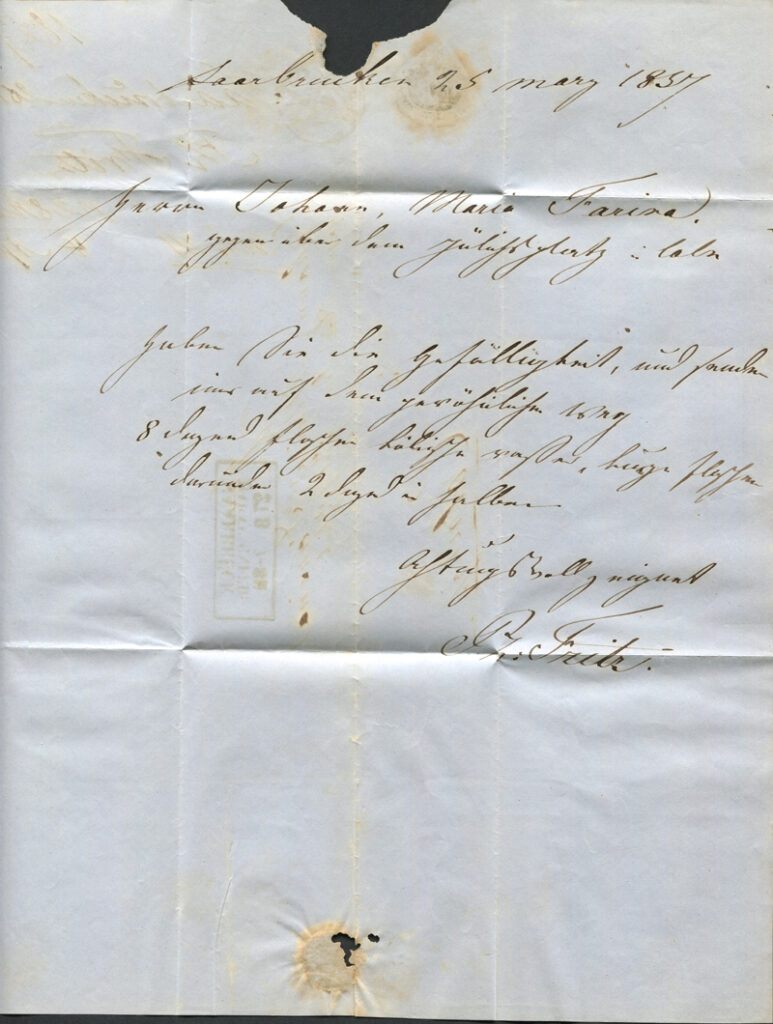 Saarbrucken 25 marz 1857
Herrn Johann, Maria Farina.
gegenüber dem Jülichsplatz in Coln
Haben Sie die Gefälligkeit, und senden
uns auf dem gewöhnlichen Weg
8 duzend flaschen kölnisch wasser, lange flaschen
darunder 2 duzend in halben
Achtungsvoll zeignet
Ph: Fritz.